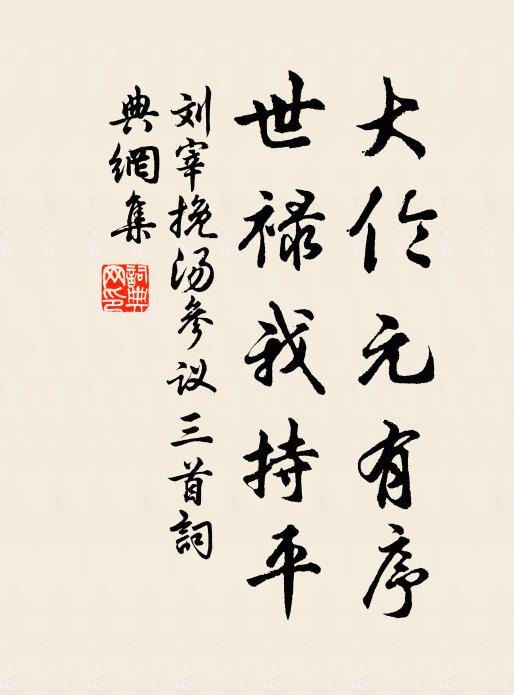 大伦元有序
世禄我持平
刘宰挽汤參议三首詞
典網集
詞典
网印